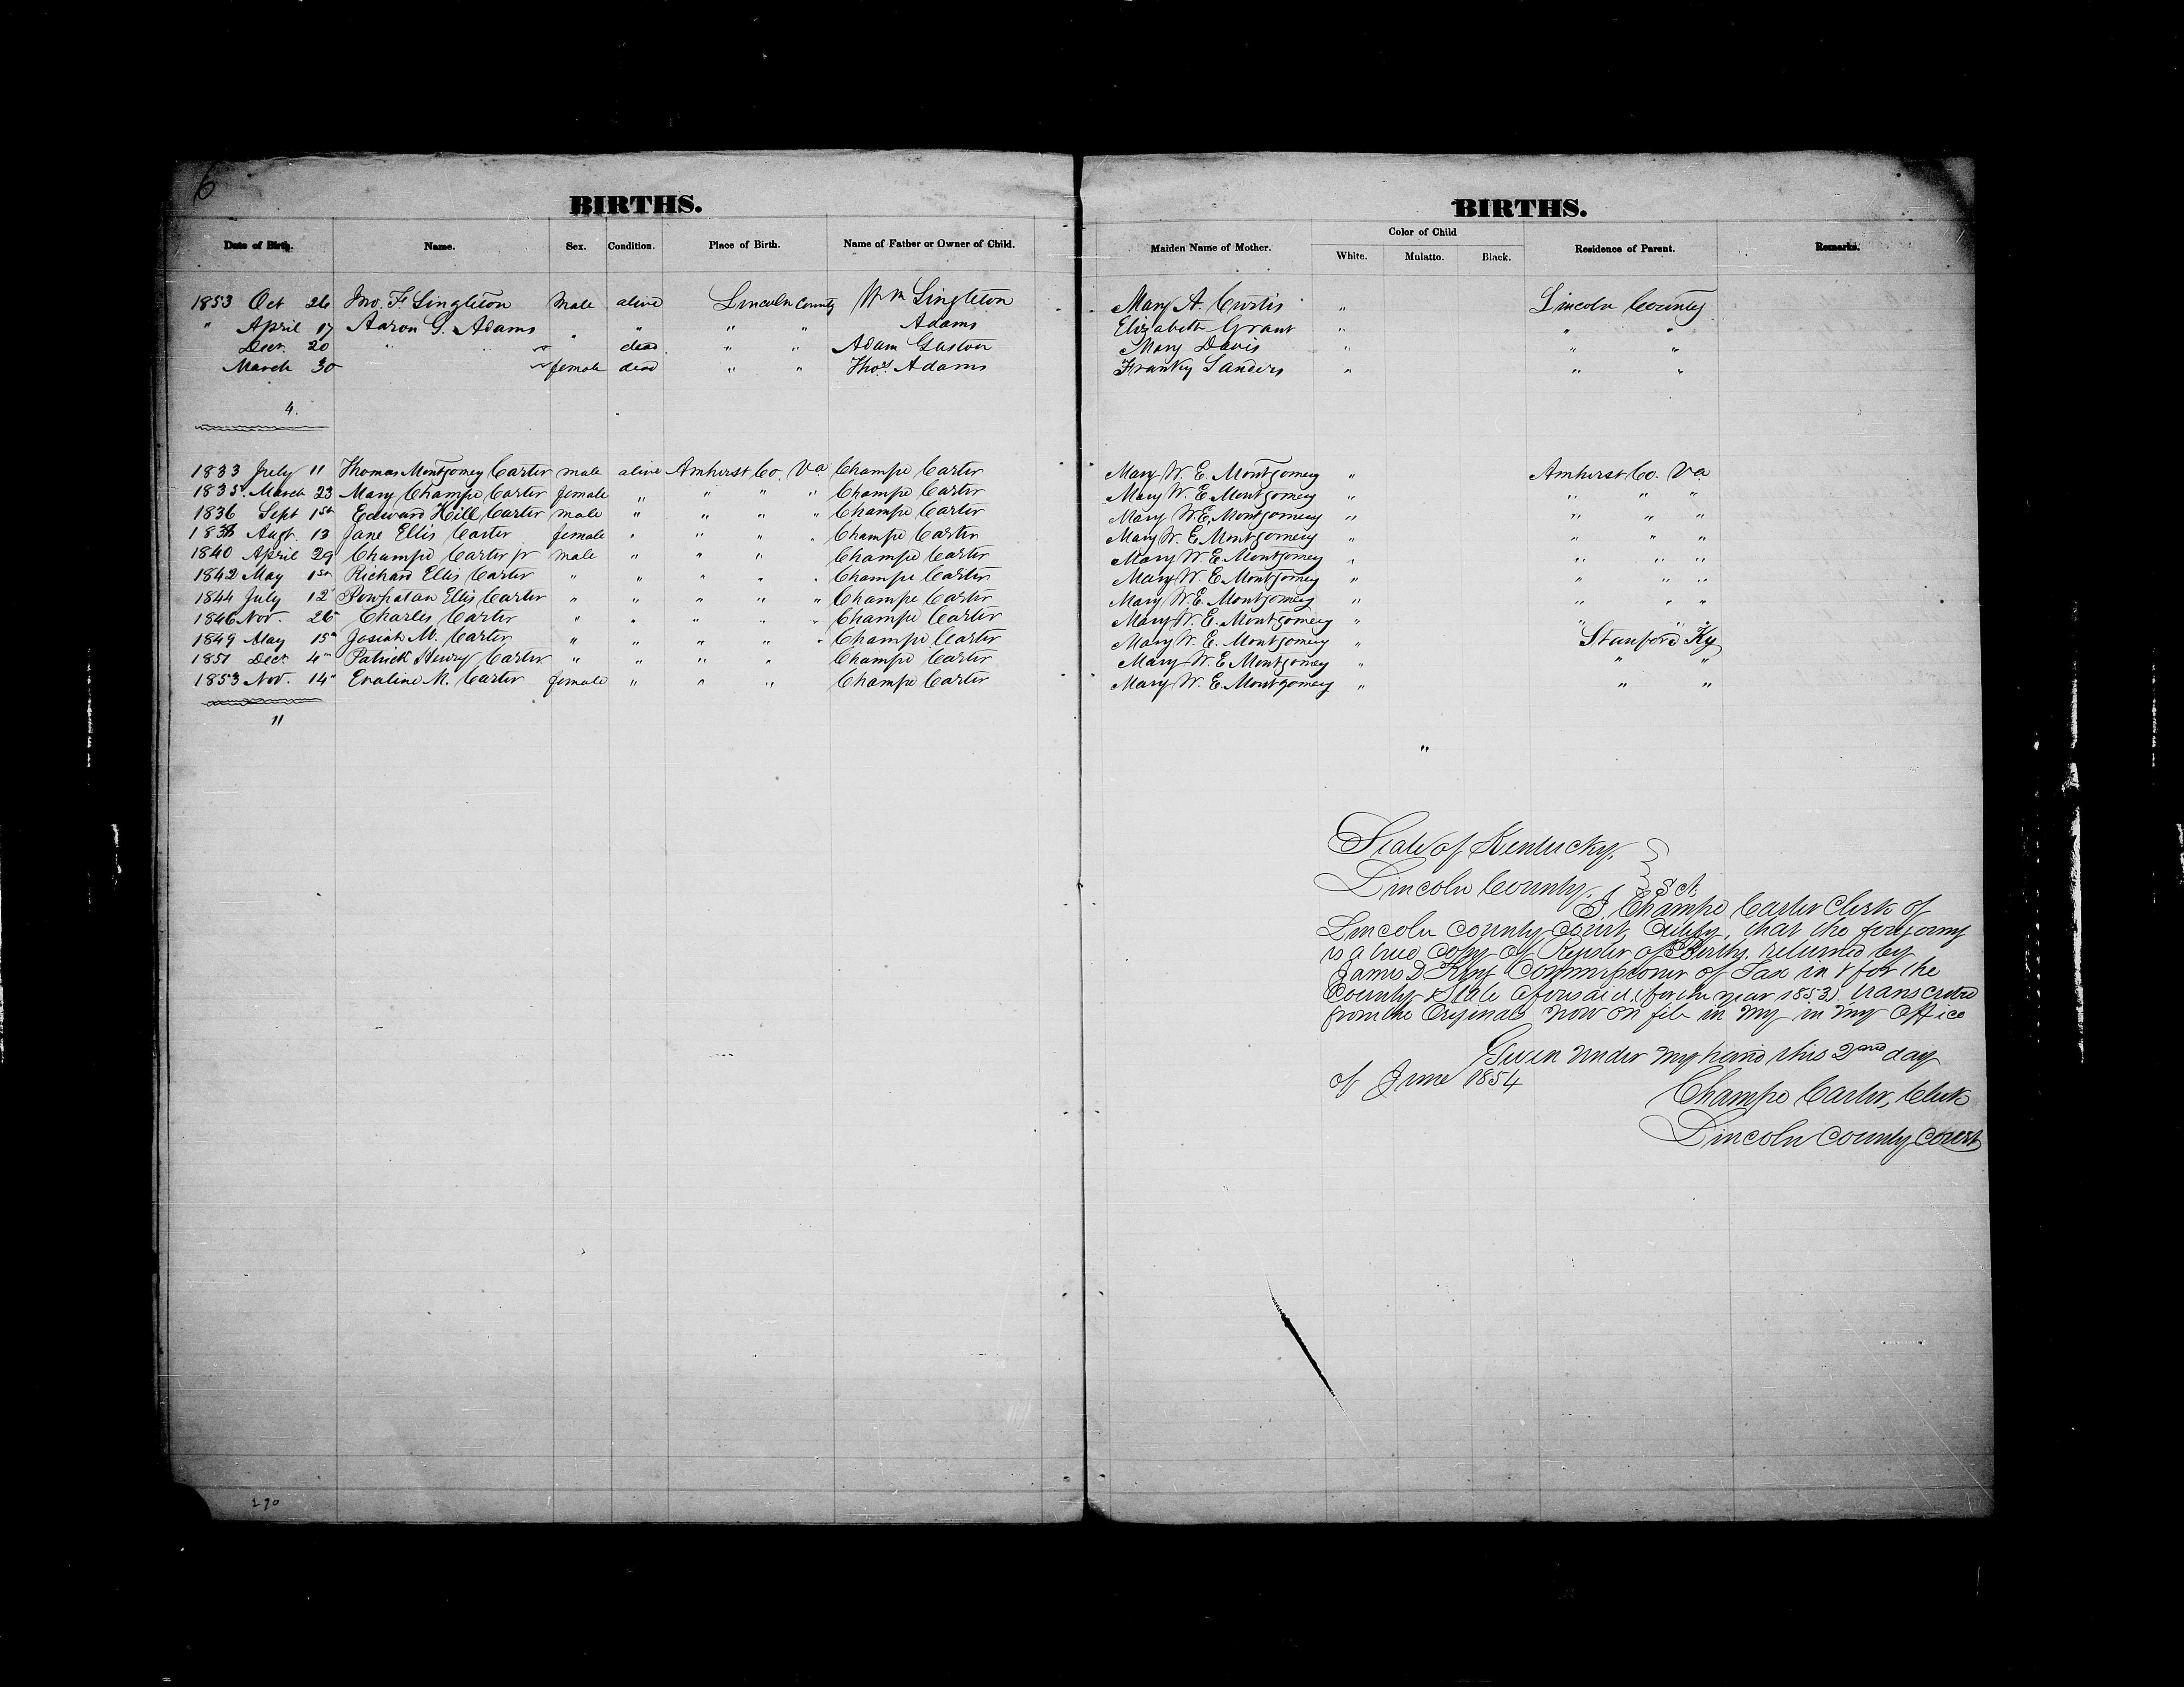 6
BIRTHS. BIRTHS.
Date of Birth. Name. Sex. Condition. Place of Birth. Name of Father or Owner of Child. Maiden Name of Mother. Color of Child White. Mulatto. Black. Residence of Parent. Remarks.
1853 Oct 26 Jno. F Singleton Male alive Lincoln County Wm Singleton Mary A. Curtis " Lincoln County
" April 17 Aaron G. Adams " " " " Adams Elizabeth Grant " " "
Decr. 20 " " dead " " Adam Gaston Mary Davis " " "
March 30 female dead " " Thos Adams Franky Sanders " " "
4.
1833 July 11 Thomas Montgomery Carter male alive Amherst Co. Va Champe Carter Mary W. E. Montgomery " Amherst Co. Va
1835 March 23 Mary Champe Carter female " " " " Champe Carter Mary W. E Montgomery " " " "
1836 Sept 1st Edward Hill Carter male " " " " Champe Carter Mary W. E. Montgomery " " " "
1838 Augt. 13 Jane Ellis Carter female " " " " Champe Carter Mary W. E Montgomery " " " "
1840 April 29 Champe Carter jr male " " " Champe Carter Mary W. E. Montgomery " " " "
1842 May 1st Richard Ellis Carter " " " " " Champe Carter Mary W. E Montgomery " " " "
1844 July 12 Powhatan Ellis Carter " " " " " Champe Carter Mary W. E. Montgomery " " " "
1846 Nov. 26 Charles Carter " " " " " Champe Carter Mary W. E. Montgomery " " " "
1849 May 15th Josiah M. Carter " " " " " Champe Carter Mary W. E. Montgomery " Stanford Ky
1851 Decr 4th Patrick Henry Carter " " " " Champe Carter Mary W. E Montgomery " " "
1853 Nov. 14" Evaline M. Carter female " " " Champe Carter Mary W. E. Montgomery " " "
11
"
State of Kentucky,
Lincoln County, Sct.
I Champe Carter Clerk of
Lincoln County Court, Certify, that the foregoing
is a true Copy of Register of Births, returned by
James D King Commissioner of Tax in & for the
County & State aforesaid, (for the year 1853) transcribed
from the Original now on file in my in my Office
Given under my hand this 2nd day
of June 1854
Champe Carter, Clerk
Lincoln County Court
270